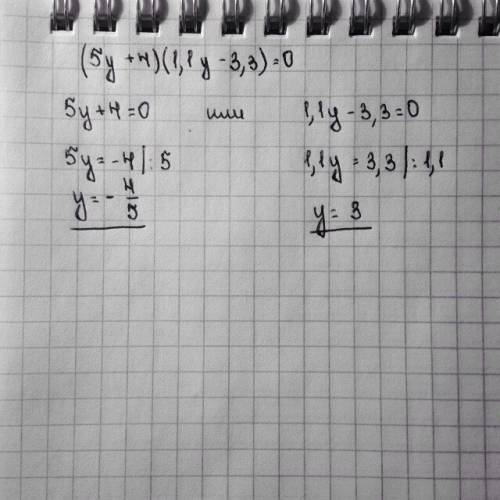 (5y + 4)(1,1y - 3,3) = 0
5y + 4 = 0 или 1,1y - 3,3 = 0
5y = -4 | : 5 1,1y = 3,3 | : 1,1
y = - 4/5 y = 3